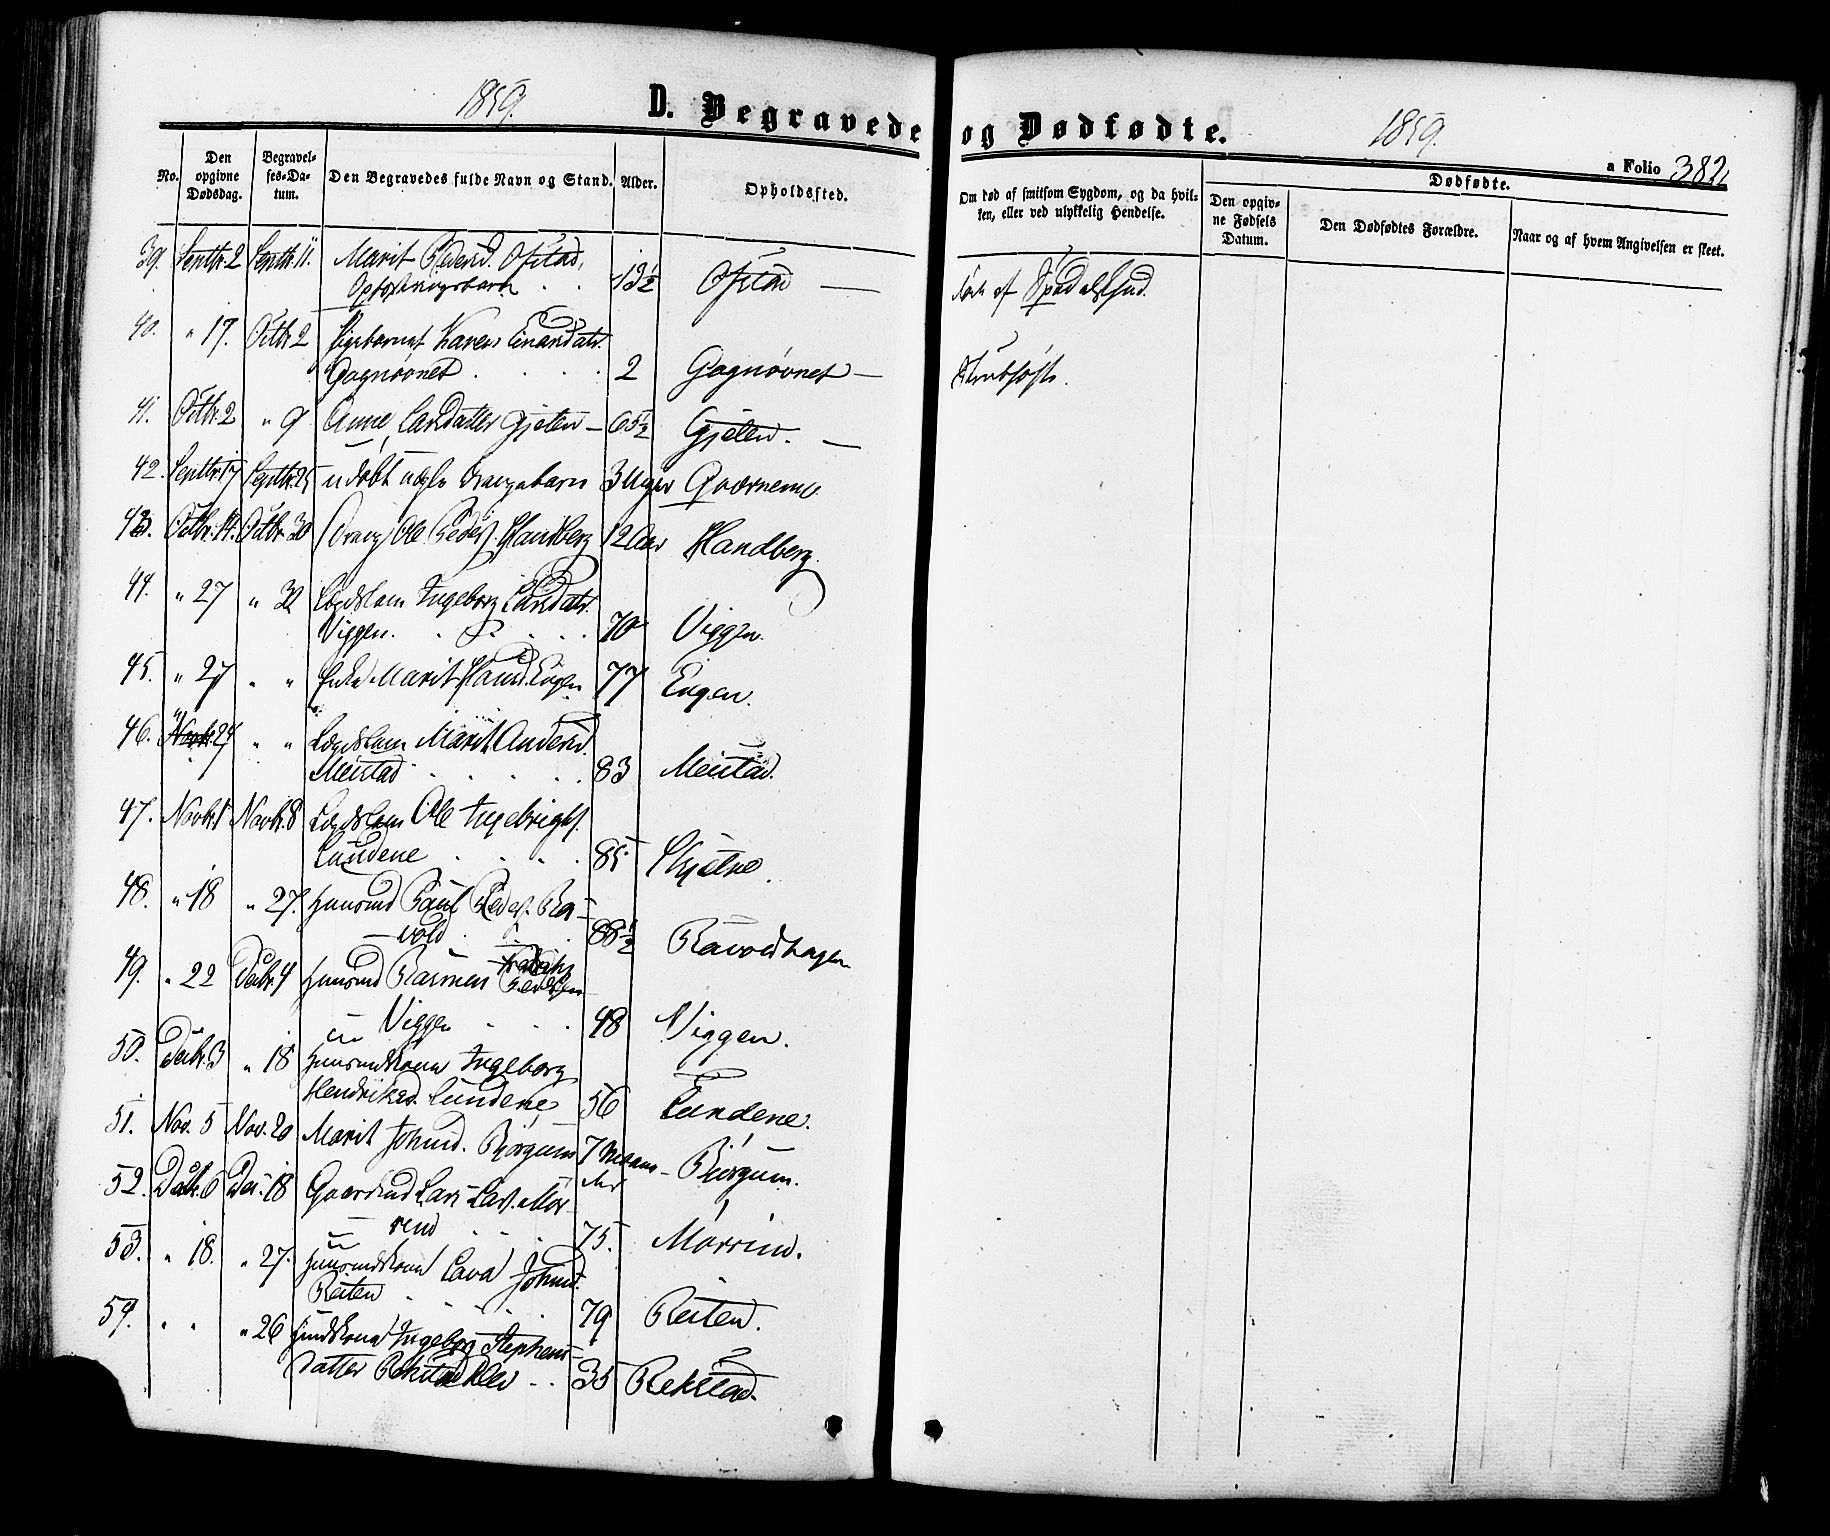 1859.
D. Begravede
og Dødfødte.
1859.
a Folio 382
No.
Den opgivne Dødsdag.
Begravel-
ses-Da-
tum.
Den Begravedes fulde Navn og Stand.
Alder.
Opholdssted.
Om død af smitsom Sygdom, og da hvil-
ken, eller ved ulykkelig Hendelse.
Dødfødte.
Den opgiv-
ne Fødsels
Datum.
Den Dødfødtes Forældre.
Naar og af hvem Angivelsen er skeet.
39. Septbr. 2 Septbr. 11. Marit Pedersd. Ofstad,
Opfostringsbarn 13½ Ofstad — død af Spedalskhed.
40. " 17. Octbr 2 Pigebarnet Karen Einarsdatr.
Gagnøvnet 2 Gagnøvnet — Strubehoste.
41. Octbr. 2 " 9 Anne Larsdatter Gjølen — 65½ Gjølen. —
42. Septbr. 17 Septbr. 25 udøbt uægte Drengebarn 3 Uger Qværnemo
43. Octbr. 14. Octbr. 30 Dreng Ole Peders. Handberg 12 Aar Handberg.
44. " 27 " 30 Lægdslem Ingeborg Larsdatr.
Viggen. 70 Viggen.
45. " 27 " " Enke Marit Hansd. Eugen 77 Eugen.
46. " 24 " " Lægdslem Marit Andersd.
Meistad 83 Meistad.
47. Novbr. 1 Novbr. 8 Lægdslem Ole Ingebrigts.
Lundene 85 Skjølne.
48. " 18 " 27. Huusmd Paul Peders. Ra-
vold 88½ Ravoldhagen
49. " 22 Decbr. 4 Huusmd Rasmus Pedersen
Viggen 48 Viggen.
50. Decbr. 3 " 18 Huusmdskone Ingeborg
Hendriksd. Lundene 56 Lundene.
51. Nov. 5 Nov. 20 Marit Johnsd. Bjørgum 7 Maane-
der Bjørgum.
52. Decbr. 6 Dec. 18 Gaardmd Lars Lars. Mør-
rend 75. Mørrim.
53. " 18. " 27. Huusmdskone Lava Johnsd.
Reiten 79 Reiten.
54. " " " 26 Huusmdskone Ingeborg Stephens-
datter Rekstadklev 35 Rekstad.